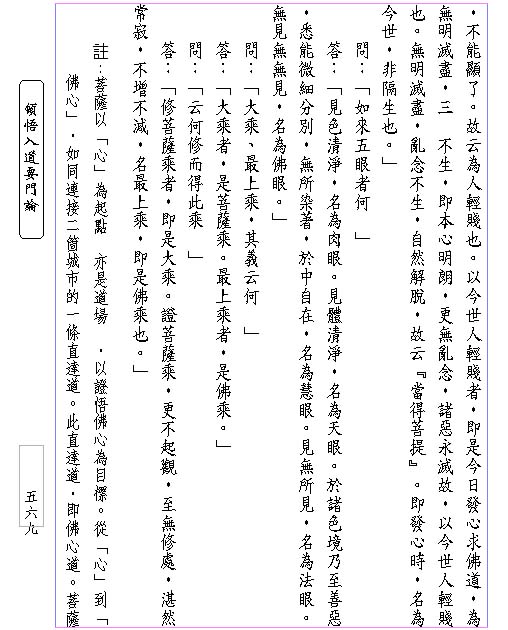 ，不能顯了。故云為人輕賤也。以今世人輕賤者，即是今日發心求佛道，為
無明滅盡，三　不生，即本心明朗，更無亂念，諸惡永滅故，以今世人輕賤
也。無明滅盡，亂念不生，自然解脫，故云『當得菩提』。即發心時，名為
今世，非隔生也。」
問：「如來五眼者何　」
答：「見色清淨，名為肉眼。見體清淨，名為天眼。於諸色境乃至善惡
，悉能微細分別，無所染著，於中自在，名為慧眼。見無所見，名為法眼。
無見無無見，名為佛眼。」
問：「大乘、最上乘，其義云何　」
答：「大乘者，是菩薩乘。最上乘者，是佛乘。」
問：「云何修而得此乘　」
答：「修菩薩乘者，即是大乘。證菩薩乘，更不起觀，至無修處，湛然
常寂，不增不減，名最上乘，即是佛乘也。」
註：菩薩以「心」為起點　亦是道場　，以證悟佛心為目標。從「心」到「
佛心」，如同連接二箇城市的一條直達道。此直達道，即佛心道。菩薩
頓悟入道要門論
五六九